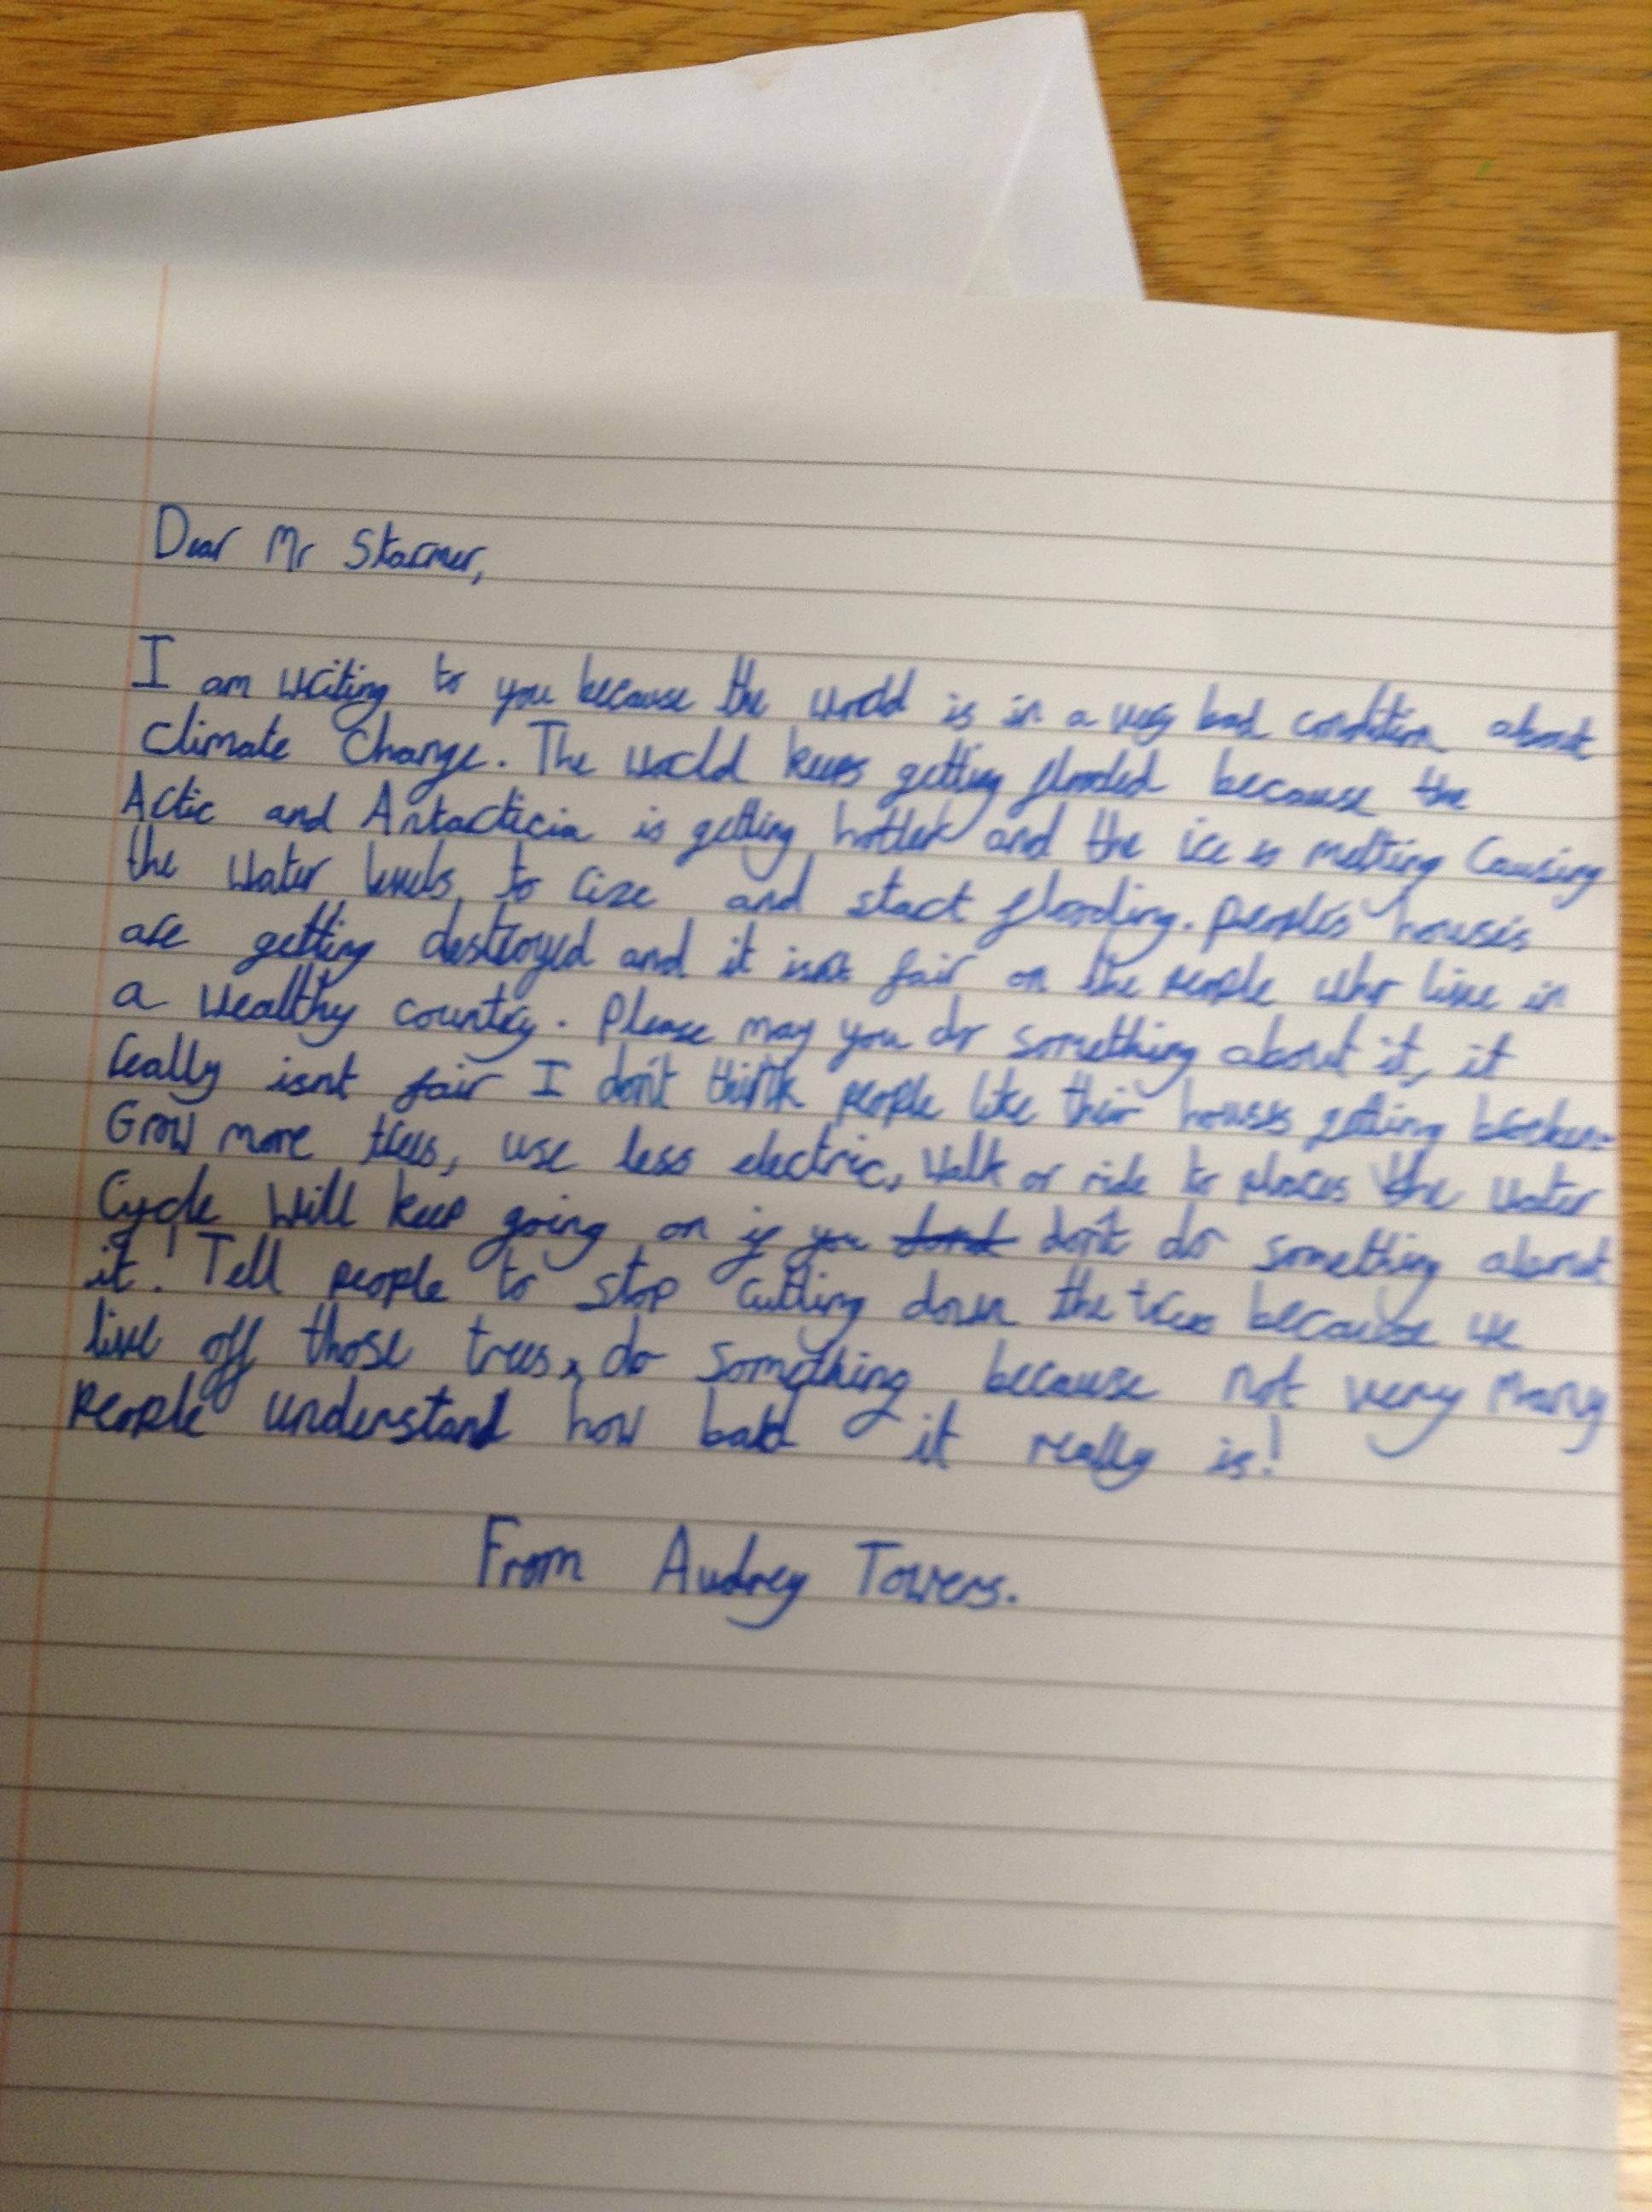 Dear Mr Starmer,
I am writing to you because the world is in a very bad condition about
climate Change. The world keeps getting flooded because the
Actic and Antacticia is getting hotter and the ice is melting Causing
the water levels, to rize and start flooding. People's houses
are getting destroyed and it isnt fair on the people who live in
a wealthy country. Please may you do something about it, it
really isnt fair I don't think people like their houses getting broken.
Grow more trees, use less electric, walk or ride to places the water
Cycle will keep going on if you dont don't do something about
it! Tell people to stop cutting down the trees because we
live off those trees, do something because not very many
people understand how bad it really is!
From Audrey Towers.